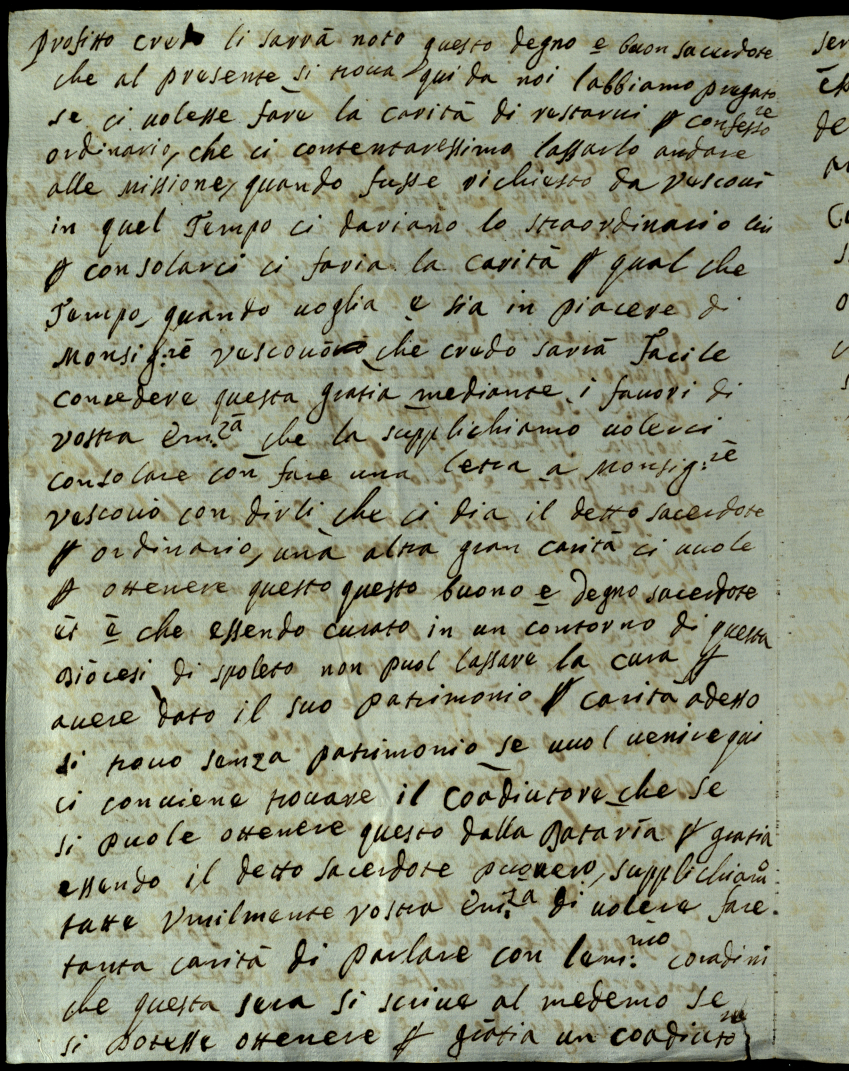 Profitto credo li sarrà noto questo degno e buon sacerdote
che al presente si troua qui da noi labbiamo pregato
se ci uolesse fare la carità di restarui ꝑ confesso.re
ordinario, che ci contentaressimo lassarlo andare
alle Missione, quando fusse richiesto da Vescoui
in quel Tempo ci dariano lo straordinario
ꝑ consolarci ci faria la carità ꝑ qual che
Tempo, quando uoglia e sia in piacere di
Monsig:rē Vescouo che credo sarià Facile
concedere questa gratia mediante i fauori di
vostra Em:zā che la supplichiamo uolerci
consolare con fare una letra a Monsig:rē
Vescouo con dirli che ci dia il detto sacerdote
ꝑ ordinario, una altra gran carità ci uuole
ꝑ ottenere questo questo buono e degno sacerdote
et è che essendo curato in un contorno di questa
Diocesi di spoleto non puol lassare la cura ꝑ
auere dato il suo patrimonio ꝑ carità adesso
si trouo senza patrimonio se uuol uenire qui
ci conuiene trouare il Coadiutore che se
si puole ottenere questo dalla Dataria ꝑ gratia
essendo il detto sacerdote pouero, supplichiam̃
tutte Vmilmente vostra Em:zā di uolere fare
tanta carità di Parlare con lem:mo coradini
che questa sera si scriue al medemo se
si potesse ottenere ꝑ gratia un coadiuto.re